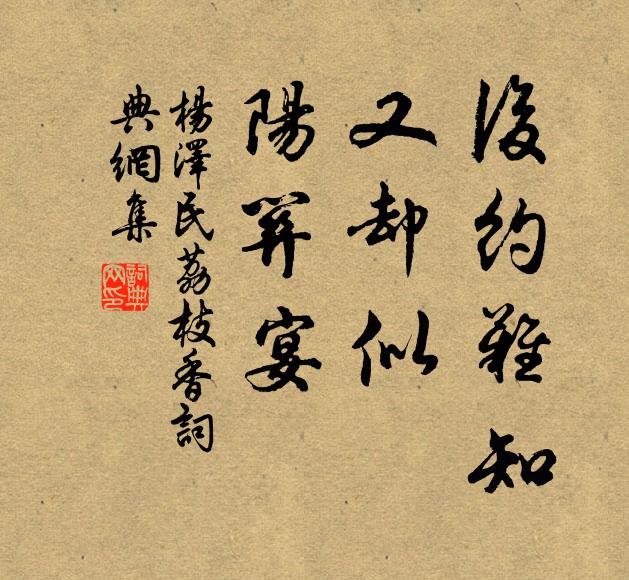 後約難知
又却似
陽關宴
楊澤民荔枝香詞
典網集
詞典
网印